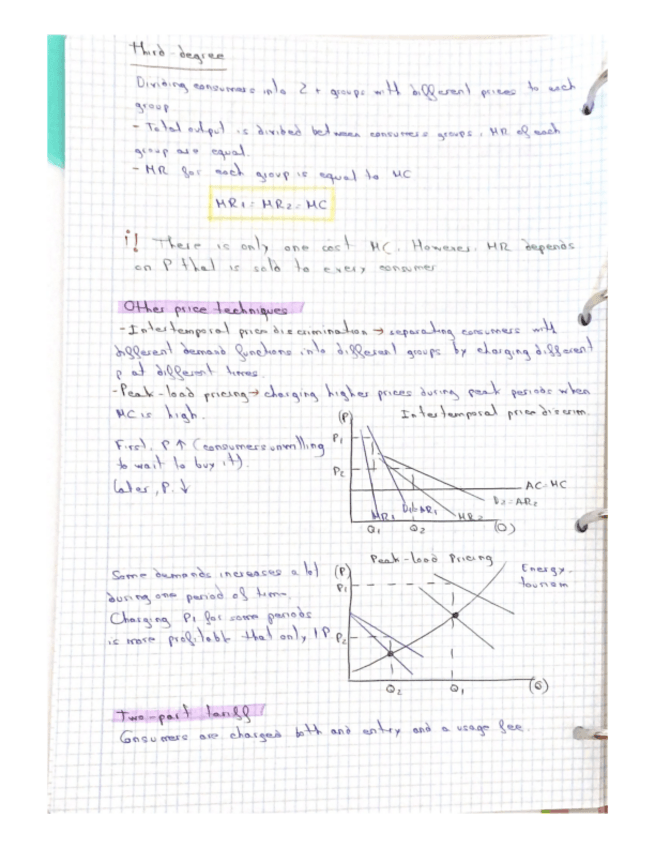 Third-degree
Dividing consumers into 2+ groups with different prices to each
group
- Total output is divided between consumers groups, MR of each
group are equal.
- MR for each group is equal to MC
MR1 = MR2 = MC
¡! There is only one cost MC. However, MR depends
on P that is sold to every consumer
Other price techniques
- Intertemporal price discrimination → separating consumers with
different demand functions into different groups by charging different
p at different times.
- Peak-load pricing → charging higher prices during peak periods when
MC is high.
(P) Intertemporal price discrim.
First, P ↑ (consumers unwilling
to wait to buy it).
Later, P. ↓
P1
P2
AC=MC
D2=AR2
MR1 D1=AR1 MR2
Q1 Q2 (Q)
Peak-load Pricing
Some demands increases a lot
during one period of time.
Charging P1 for some periods
is more profitable that only 1P
(P)
P1
P2
Energy,
tourism
Q2 Q1 (Q)
Two-part tariff
Consumers are charged both and entry and a usage fee.